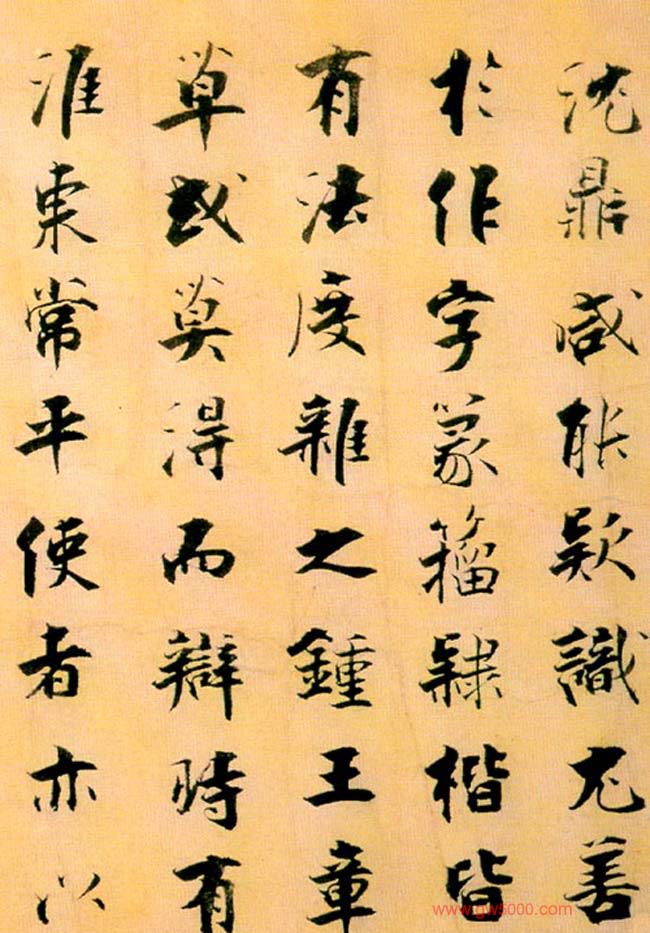 沈鼎咸能欵識尤善
於作字篆籀隸楷皆
有法度雜之鍾王章
草或莫得而辯時有
淮東常平使者亦以
www.gw5000.com